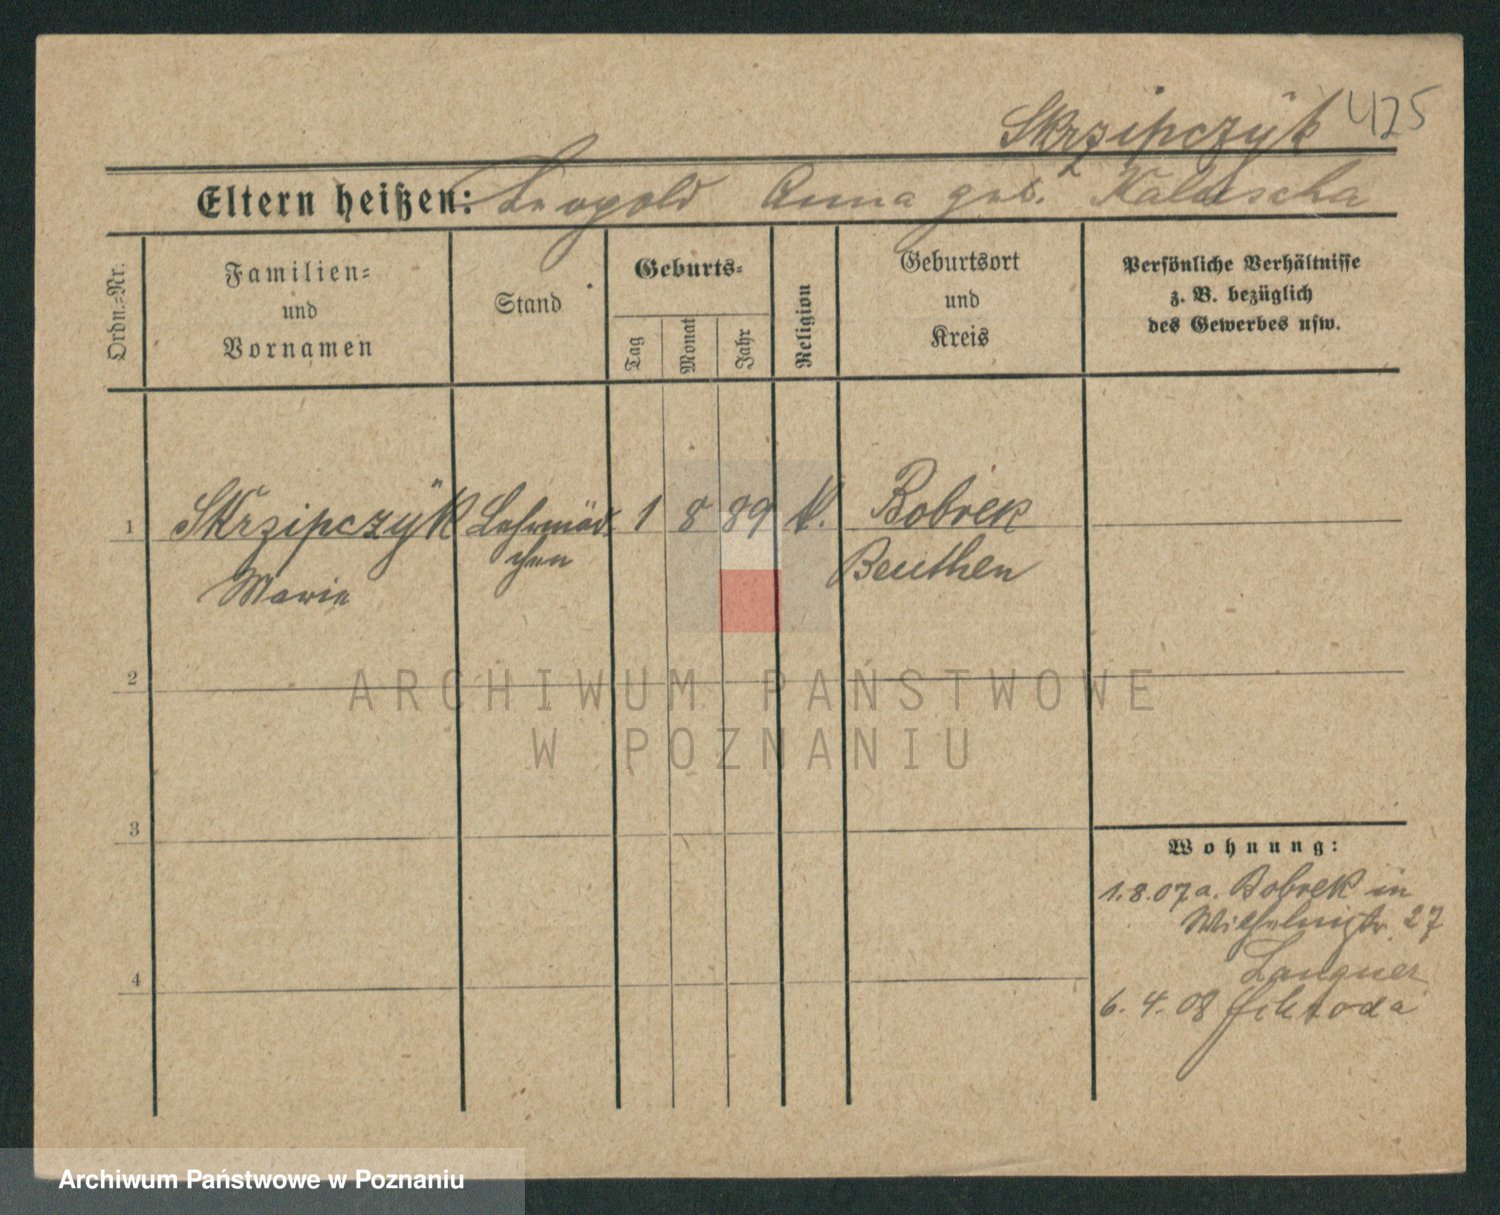 Skrzipczÿk 425
Eltern heißen: Leopold Anna geb. Kaluscha
Ordn.-Nr.
Familien-
und
Vornamen
Stand
Geburts-
Tag
Monat
Jahr
Religion
Geburtsort
und
Kreis
Persönliche Verhältnisse
z. B. bezüglich
des Gewerbes usw.
1 Skrzipczÿk Lehrmäd. 1 8 89 k. Bobrek
chen Beuthen
Marie
2
ARCHIWUM PAŃSTWOWE
W POZNANIU
3
Wohnung:
1.8.07 a. Bobrek in
Wilhelmstr. 27
Langner
4
6. 4. 08
Archiwum Państwowe w Poznaniu